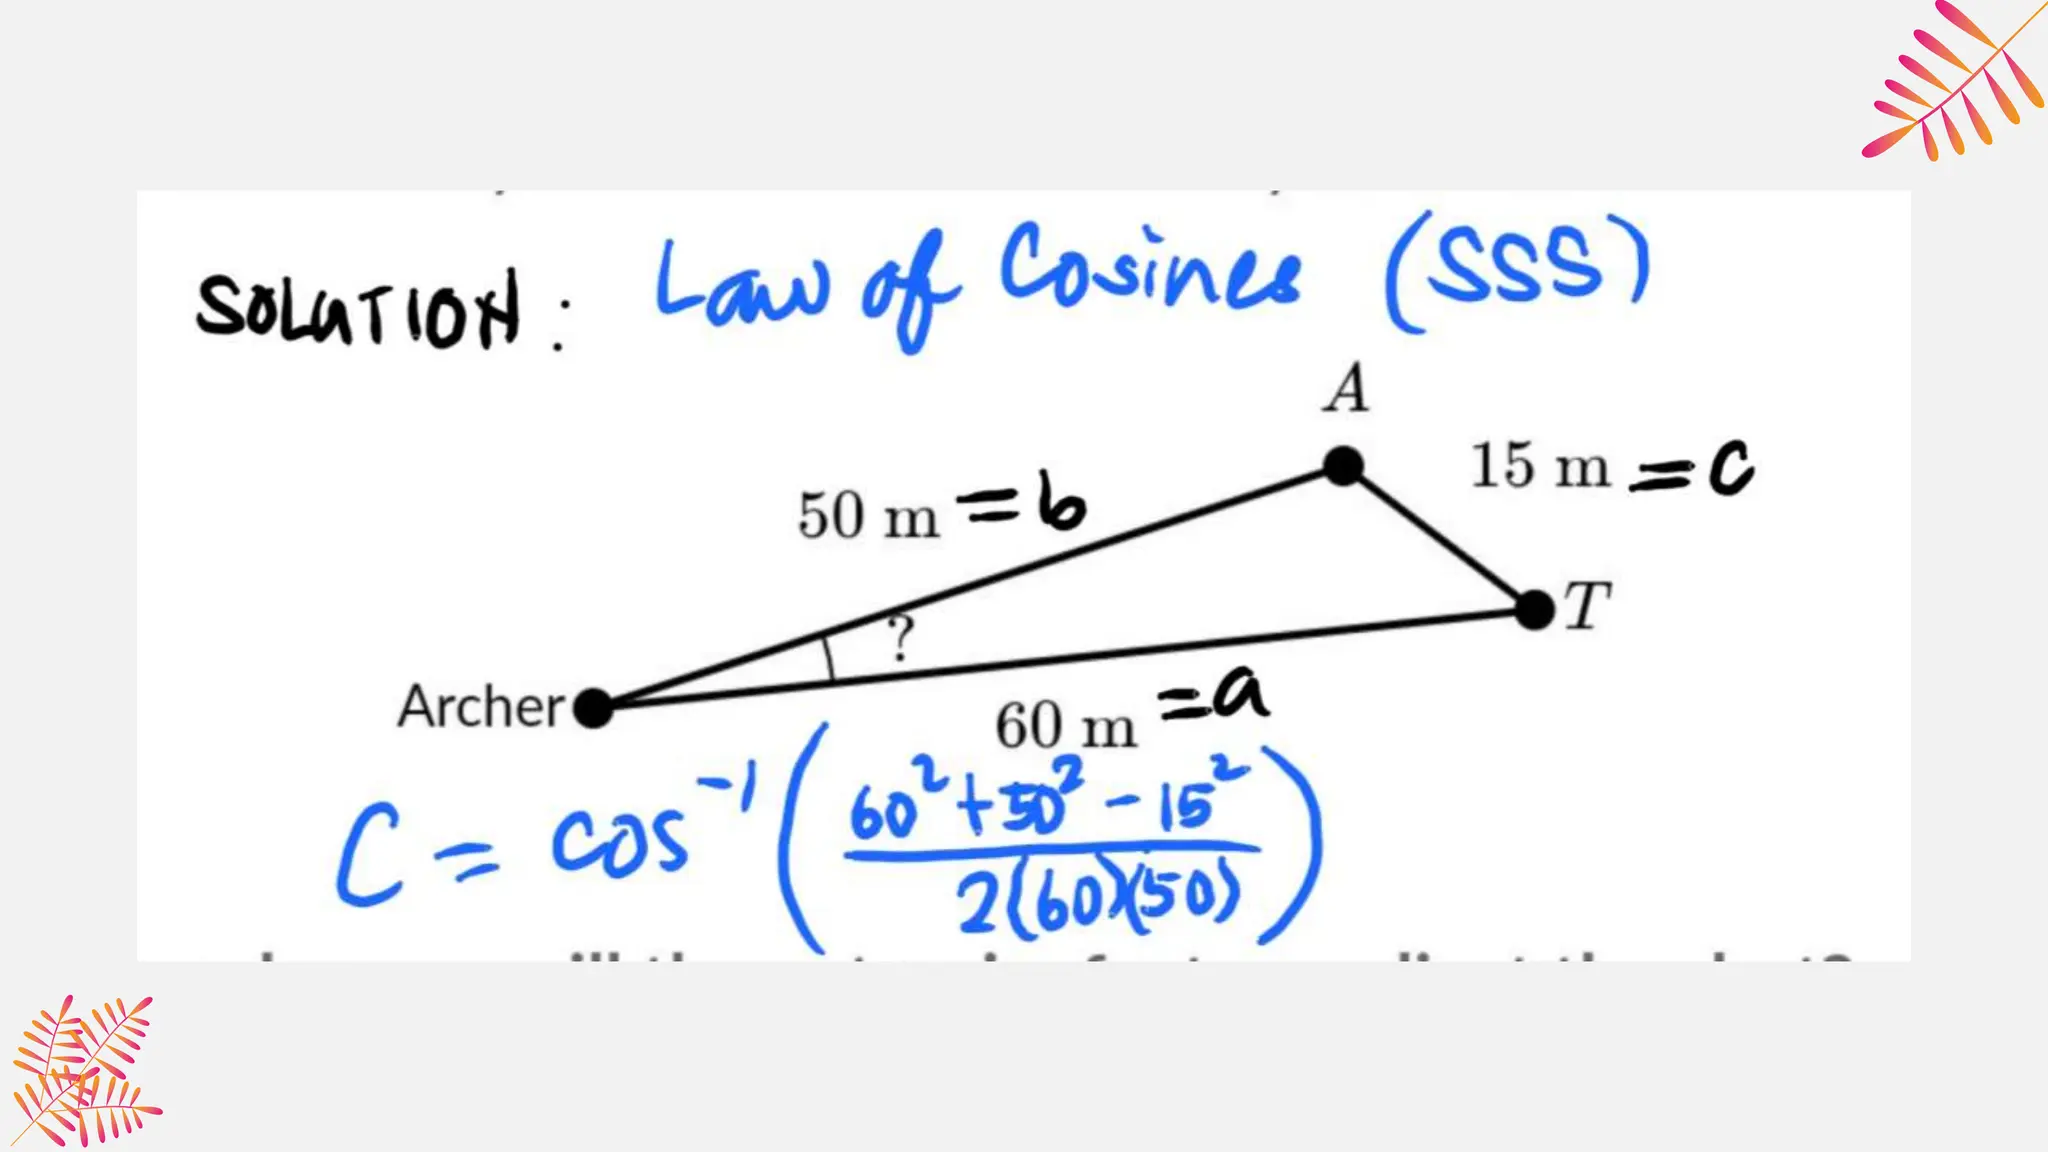 SOLUTION: Law of Cosines (SSS)
A
15 m = c
50 m = b
T
?
Archer
60 m = a
C = cos⁻¹(60² + 50² - 15² / 2(60)(50))